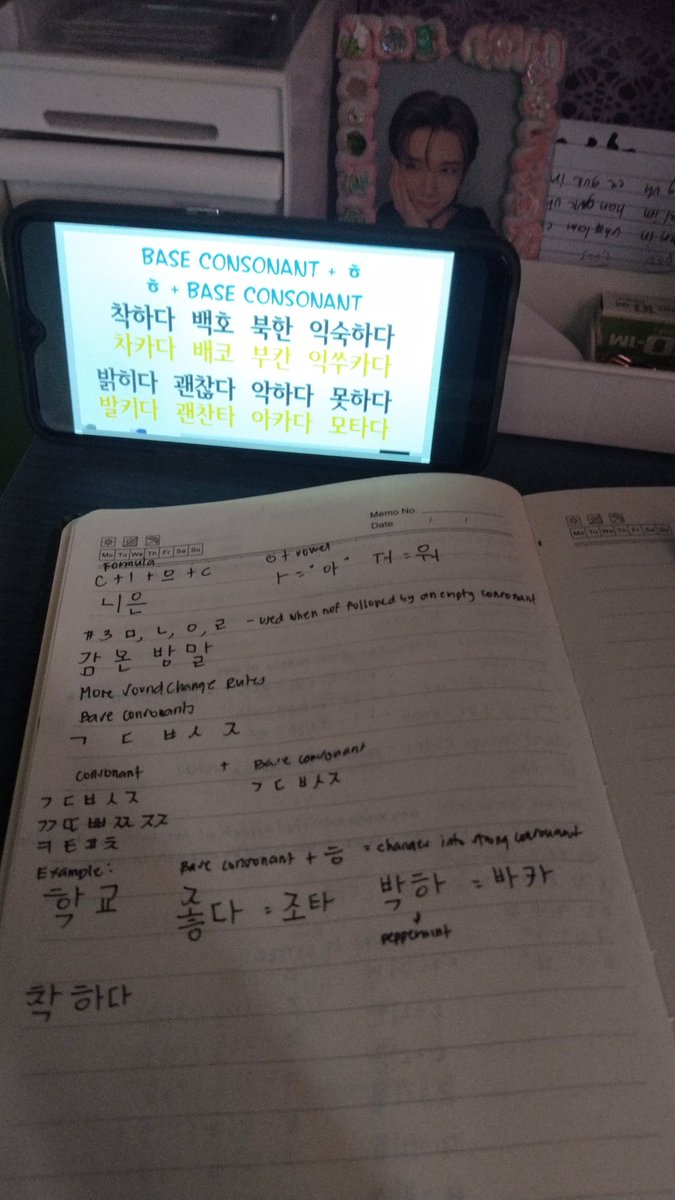 BASE CONSONANT + ㅎ
ㅎ + BASE CONSONANT
착하다 백호 북한 익숙하다
차카다 배코 부칸 익쑤카다
밝히다 괜찮다 악하다 못하다
발키다 괜찬타 아카다 모타다
Memo No.
Date / /
Mo Tu We Th Fr Sa Su
Formula
C + ㅣ + 으 + C
ㅇ + vowel
ㅏ = "아"
ㅝ = 워
니은
#3 ㅁ, ㄴ, ㅇ, ㄹ - used when not followed by an empty consonant
감 온 밤 말
More sound change rules
Base consonants
ㄱ ㄷ ㅂ ㅅ ㅈ
Consonant + Base consonant
ㄱ ㄷ ㅂ ㅅ ㅈ ㄱ ㄷ ㅂ ㅅ ㅈ
ㄲ ㄸ ㅃ ㅉ ㅈㅈ
ㅋ ㅌ ㅍ ㅊ
Example: Base consonant + ㅎ = changes into strong consonant
학교 좋다 = 조타 박하 = 바카
peppermint
착하다
Mo Tu We Th Fr